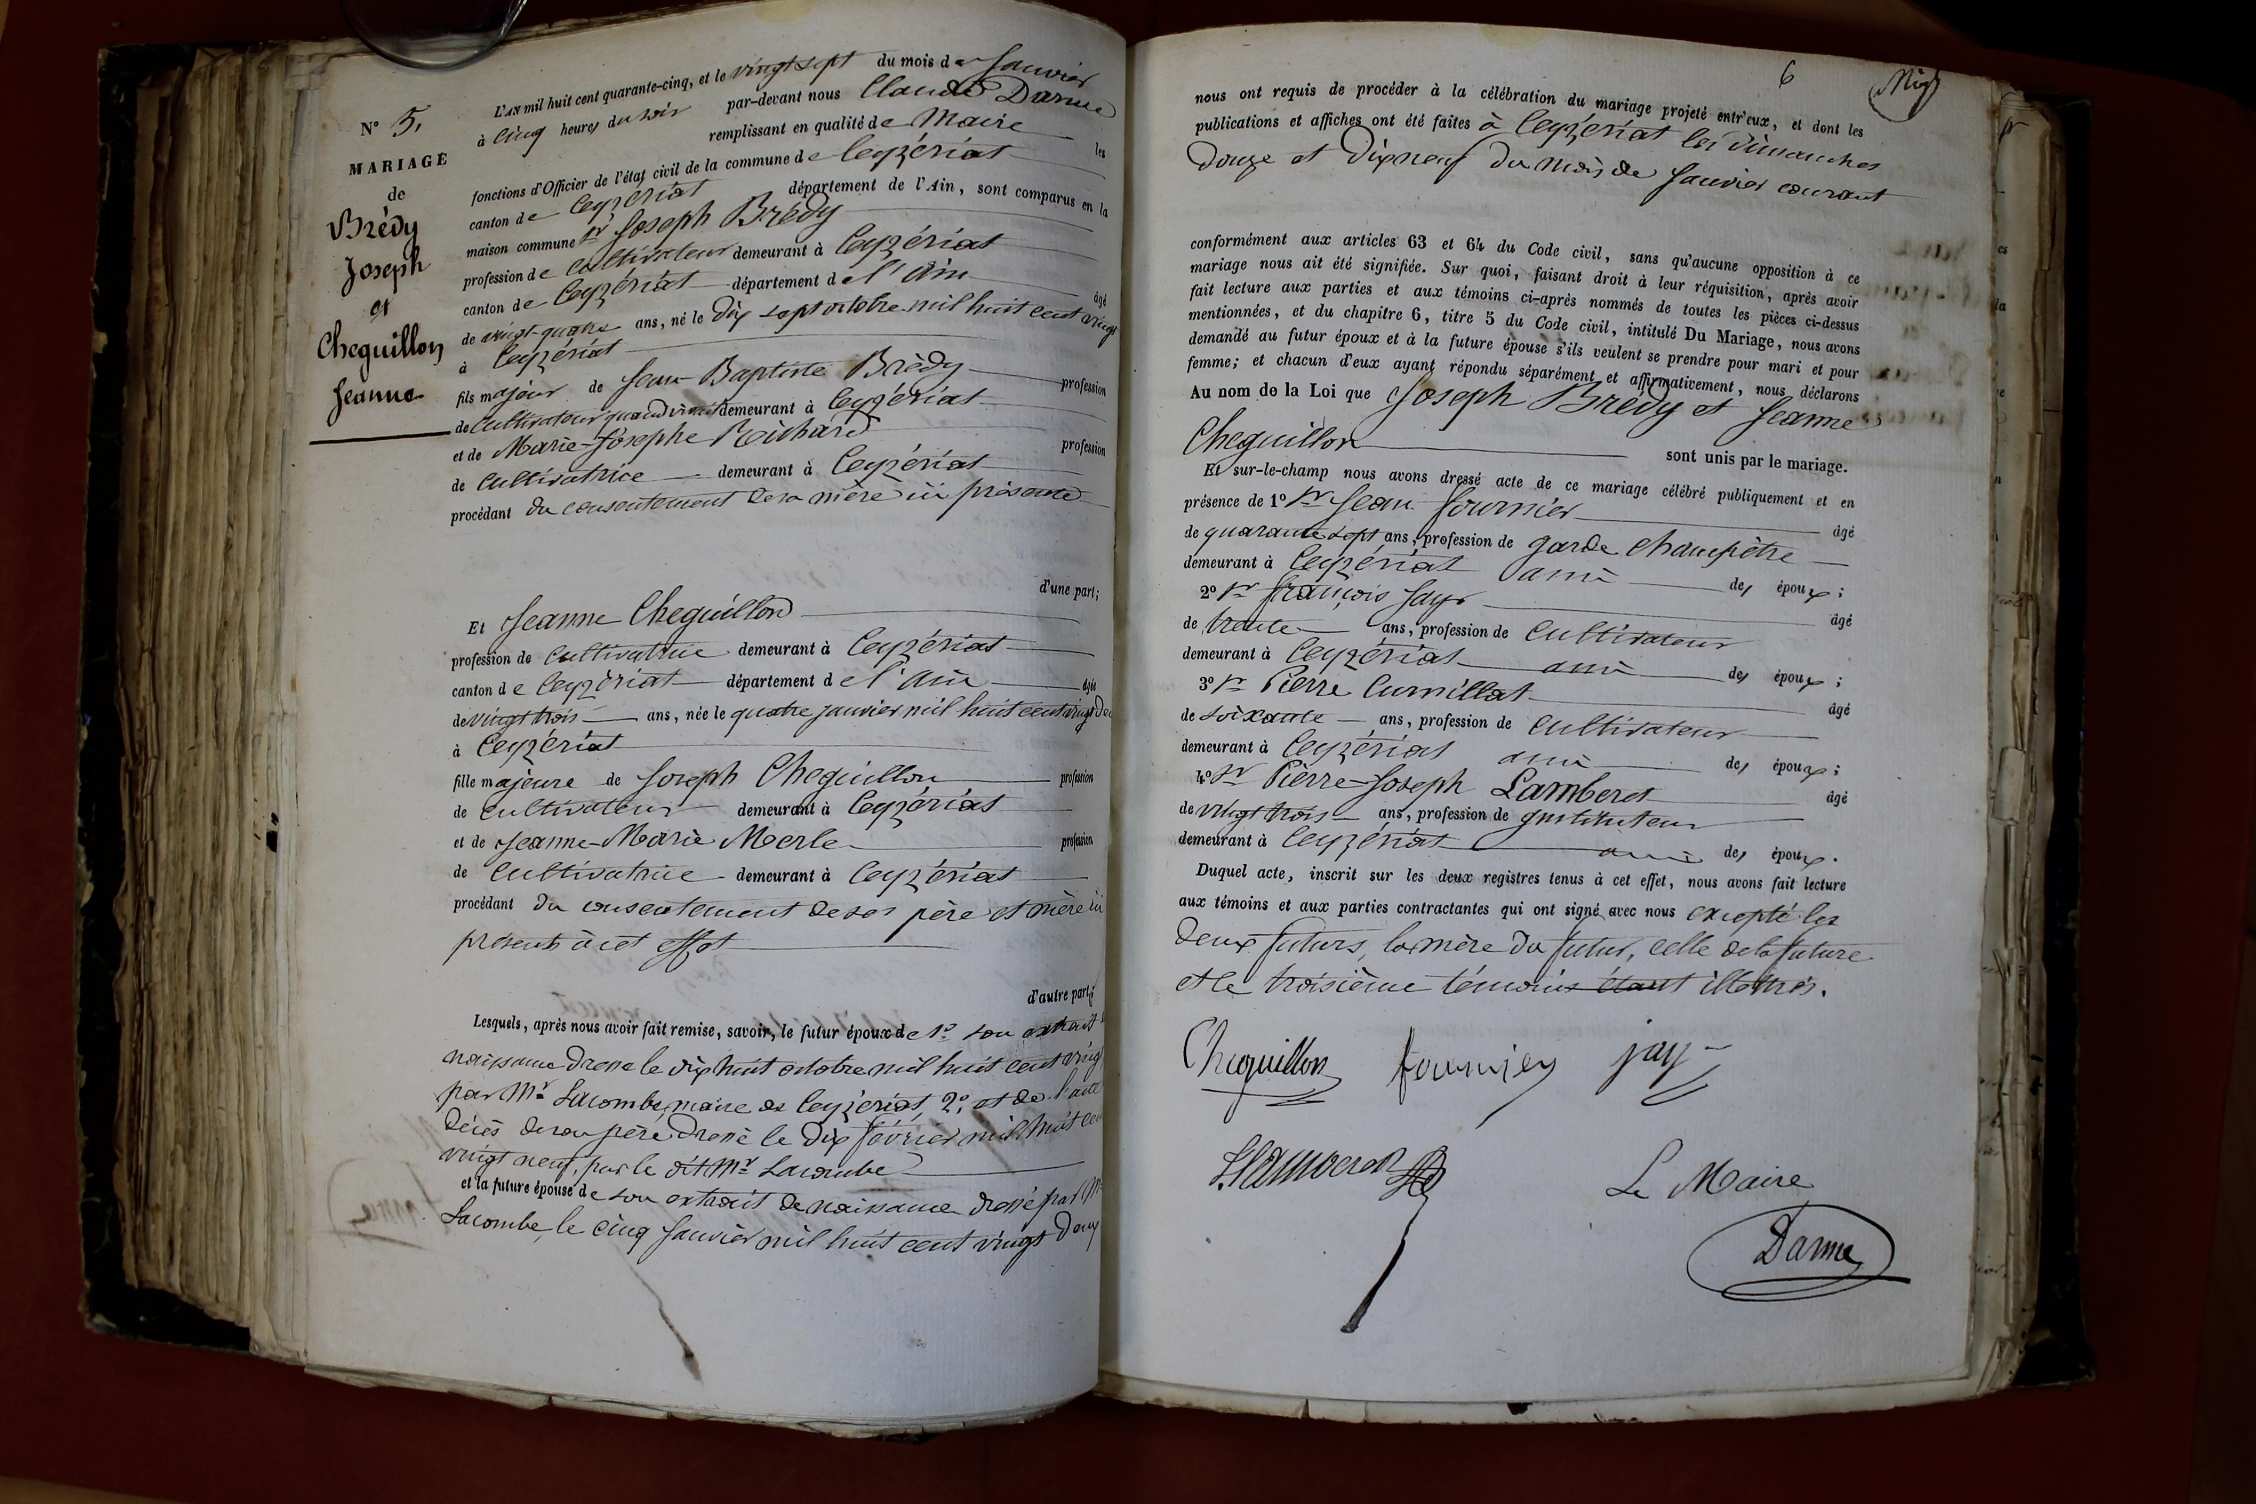 N° 5.
MARIAGE
de
Brédy
Joseph
et
Cheguillon
Jeanne
L'an mil huit cent quarante-cinq, et le vingt sept du mois de Janvier
à cinq heures du soir par-devant nous Claude Darme
remplissant en qualité de Maire les
fonctions d'Officier de l'état civil de la commune de Ceyzériat
canton de Ceyzériat département de l'Ain, sont comparus en la
maison commune Sr Joseph Brédy
profession de cultivateur demeurant à Ceyzériat
canton de Ceyzériat département de l'Ain âgé
de vingt-quatre ans, né le dix sept octobre mil huit cent vingt
à Ceyzériat
fils majeur de Jean Baptiste Brédy profession
de cultivateur quand vivait demeurant à Ceyzériat
et de Marie-Josephe Richard profession
de cultivatrice demeurant à Ceyzériat
procédant du consentement de sa mère ici présente
d'une part;
Et Jeanne Cheguillon
profession de cultivatrice demeurant à Ceyzériat
canton de Ceyzériat département de l'Ain âgée
de vingt trois ans, née le quatre janvier mil huit cent vingt deux
à Ceyzériat
fille majeure de Joseph Cheguillon profession
de cultivateur demeurant à Ceyzériat
et de Jeanne-Marie Merle profession
de cultivatrice demeurant à Ceyzériat
procédant du consentement de ses père et mère ici
présents à cet effet
d'autre part;
Lesquels, après nous avoir fait remise, savoir, le futur époux de 1° son extrait
naissance dressé le dix huit octobre mil huit cent vingt
par Mr Lacombe, maire de Ceyzériat, 2° et de l'acte
décès de son père dressé le dix février mil huit cent
vingt neuf, par le dit Mr Lacombe
et la future épouse de son extrait de naissance dressé par Mr
Lacombe, le cinq Janvier mil huit cent vingt deux
6
nous ont requis de procéder à la célébration du mariage projeté entr'eux, et dont les
publications et affiches ont été faites à Ceyzériat les dimanches
douze et dix neuf du mois de Janvier courant
conformément aux articles 63 et 64 du Code civil, sans qu'aucune opposition à ce
mariage nous ait été signifiée. Sur quoi, faisant droit à leur réquisition, après avoir
fait lecture aux parties et aux témoins ci-après nommés de toutes les pièces ci-dessus
mentionnées, et du chapitre 6, titre 5 du Code civil, intitulé Du Mariage, nous avons
demandé au futur époux et à la future épouse s'ils veulent se prendre pour mari et pour
femme; et chacun d'eux ayant répondu séparément et affirmativement, nous déclarons
Au nom de la Loi que Joseph Brédy et Jeanne
Cheguillon sont unis par le mariage.
Et sur-le-champ nous avons dressé acte de ce mariage célébré publiquement et en
présence de 1° Sr Jean Fournier âgé
de quarante sept ans, profession de garde champêtre
demeurant à Ceyzériat ami des époux;
2° Sr François Jay âgé
de trente ans, profession de cultivateur
demeurant à Ceyzériat ami des époux;
3° Sr Pierre Cumillat âgé
de soixante ans, profession de cultivateur
demeurant à Ceyzériat ami des époux;
4° Sr Pierre-Joseph Lamberet âgé
de vingt trois ans, profession de instituteur
demeurant à Ceyzériat ami des époux.
Duquel acte, inscrit sur les deux registres tenus à cet effet, nous avons fait lecture
aux témoins et aux parties contractantes qui ont signé avec nous excepté les
deux futurs, la mère du futur, celle de la future
et le troisième témoins étant illettrés.
Cheguillon fournier jay
Lamberet Le Maire
Darme